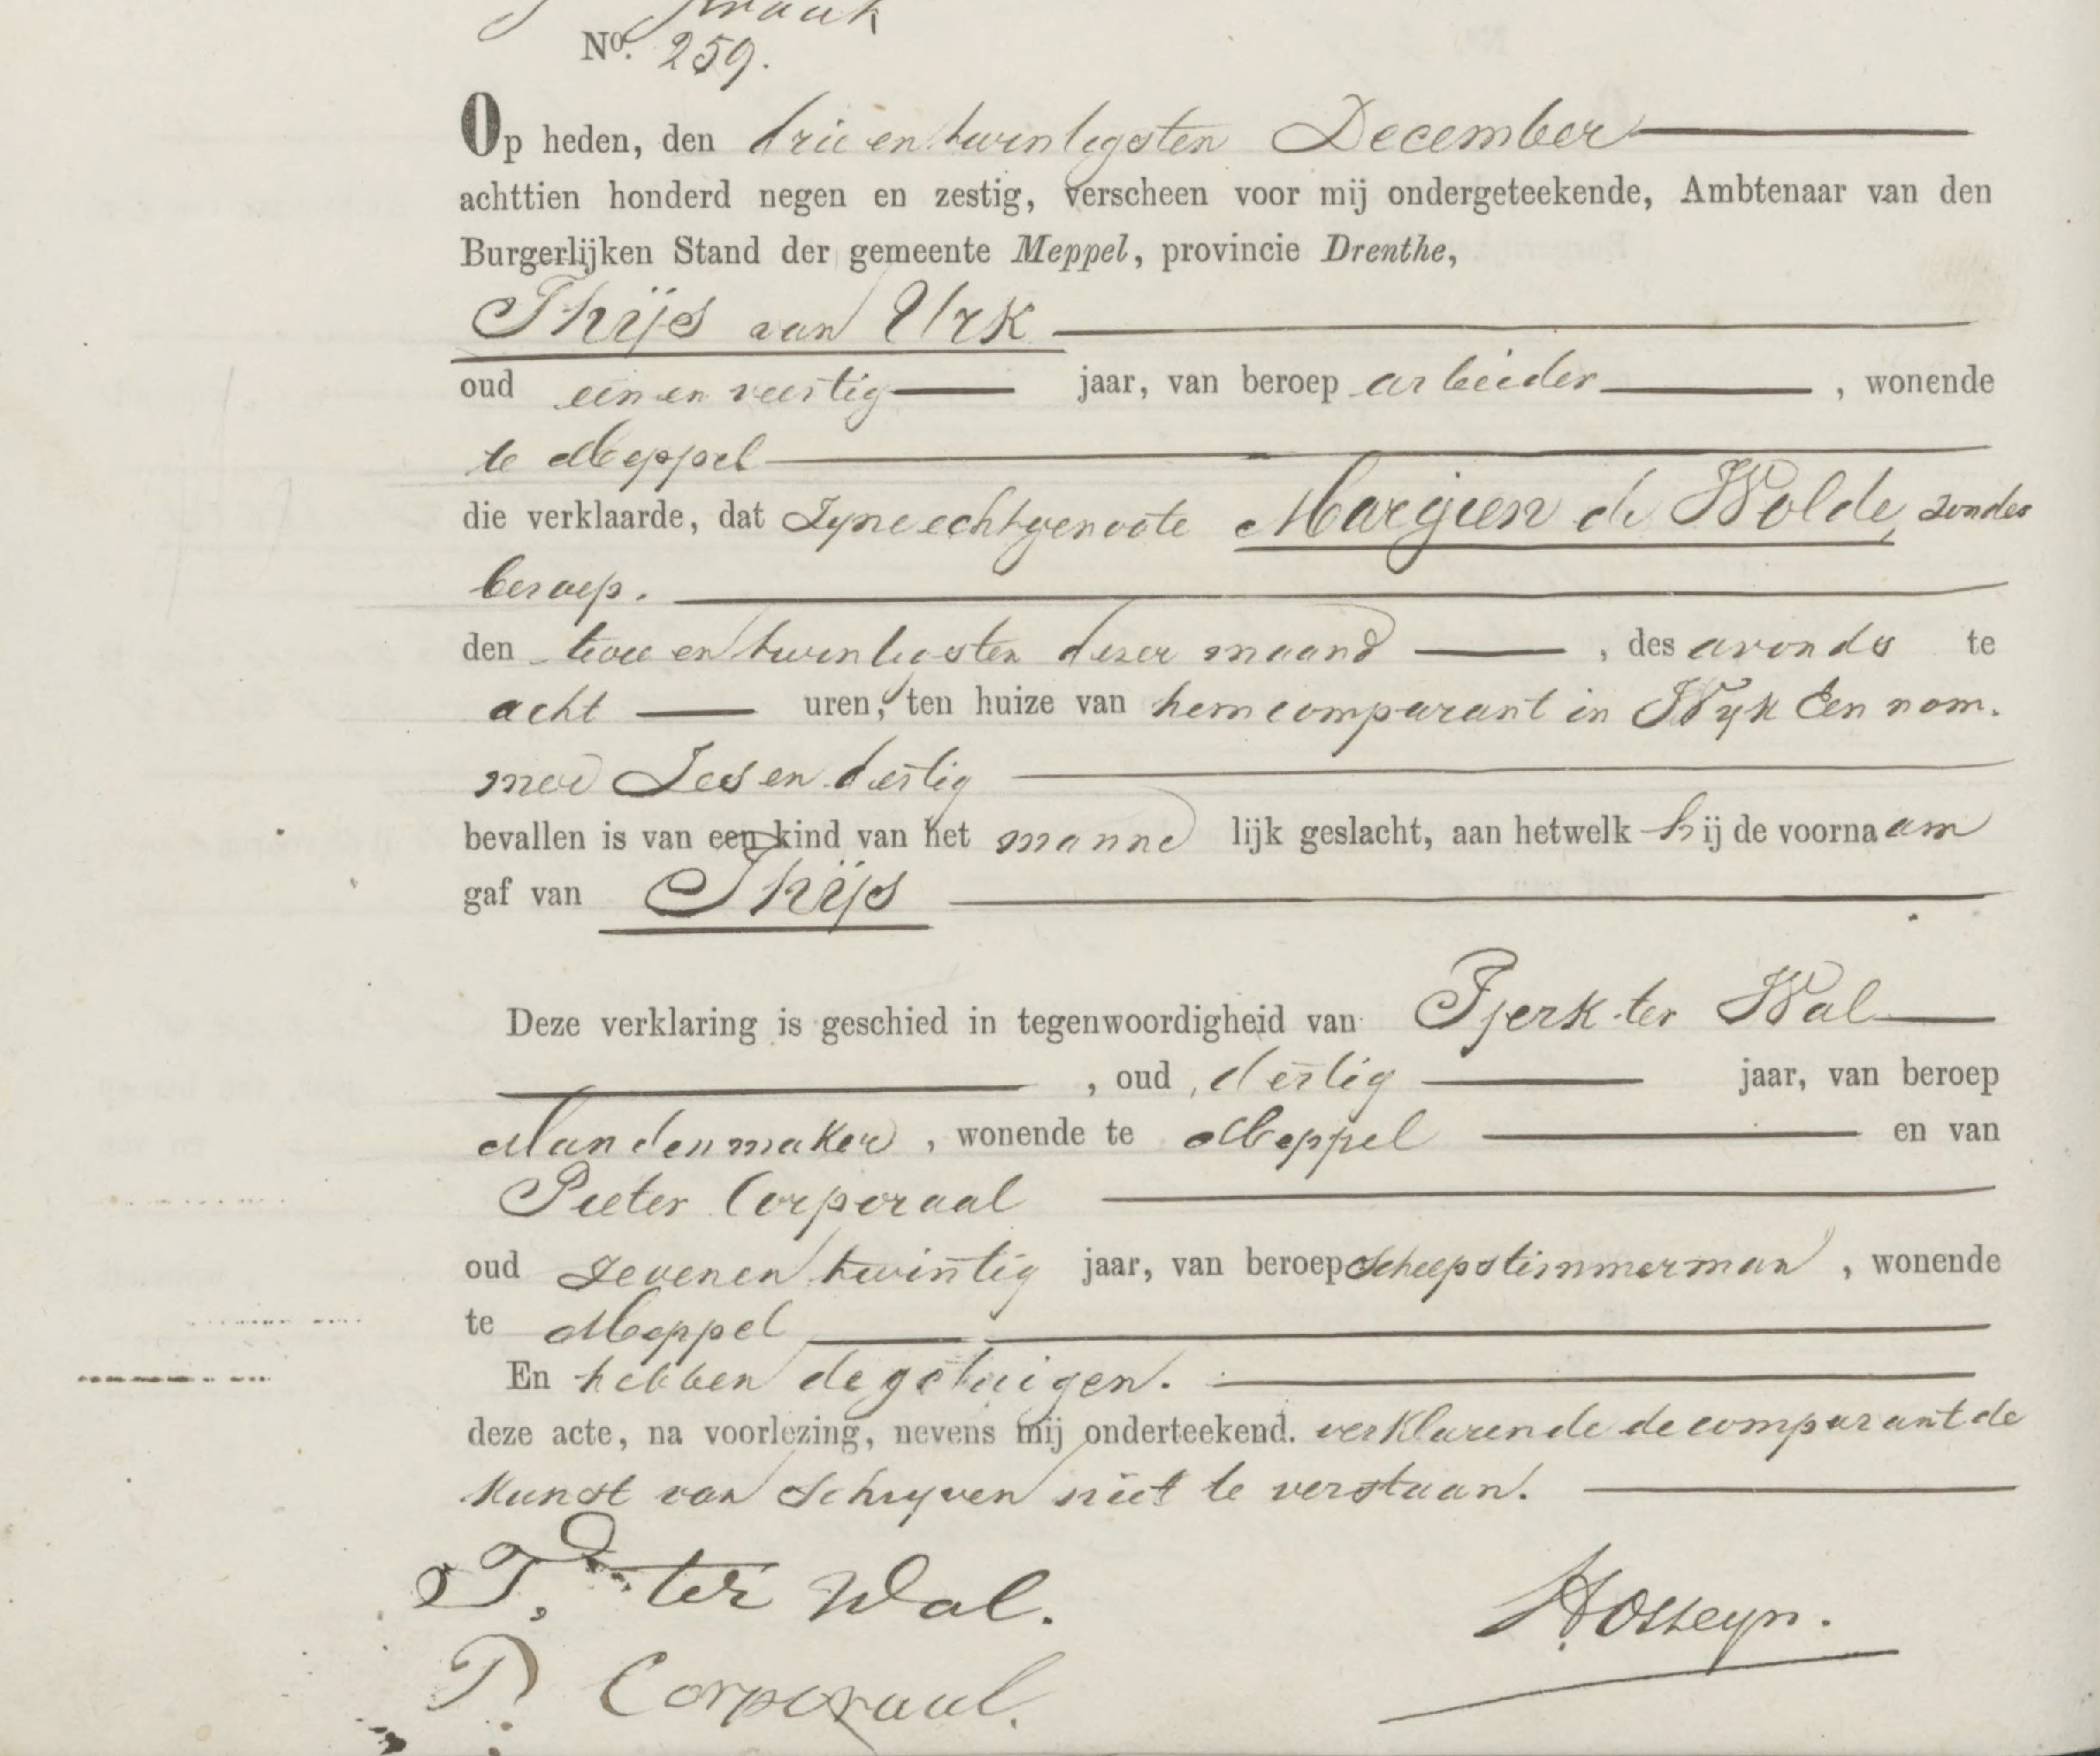 No. 259.
Op heden, den drie en twintigsten December
achttien honderd negen en zestig, verscheen voor mij ondergeteekende, Ambtenaar van den
Burgerlijken Stand der gemeente Meppel, provincie Drenthe,
Thijs van Urk
oud een en veertig jaar, van beroep arbeider, wonende
te Meppel
die verklaarde, dat Zyne echtgenoote Margien de Wolde, zonder
beroep.
den twee en twintigsten dezer maand, des avonds te
acht uren, ten huize van hem comparant in Wyk Een nom.
mer Zes en dertig
bevallen is van een kind van het manne lijk geslacht, aan hetwelk hij de voornaam
gaf van Thijs
Deze verklaring is geschied in tegenwoordigheid van Tjerk ter Wal
, oud dertig jaar, van beroep
Mandenmaker, wonende te Meppel en van
Pieter Corporaal
oud Zeven en twintig jaar, van beroep Scheepstimmerman, wonende
te Meppel
En hebben de getuigen.
deze acte, na voorlezing, nevens mij onderteekend. verklarende de comparant de
Kunst van Schryven niet te verstaan.
T. ter Wal.
P. Corporaal.